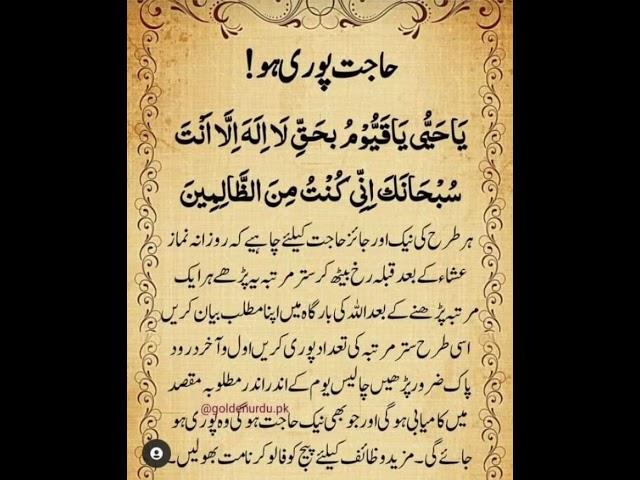 حاجت پوری ہو!
يَا حَیُّ يَا قَيُّوْمُ بِحَقِّ لَا اِلٰهَ اِلَّا اَنْتَ
سُبْحَانَكَ اِنِّی كُنْتُ مِنَ الظَّالِمِينَ
ہر طرح کی نیک اور جائز حاجت کیلئے چاہیے کہ روزانہ نماز
عشاء کے بعد قبلہ رخ بیٹھ کر ستر مرتبہ یہ پڑھے ہر ایک
مرتبہ پڑھنے کے بعد اللہ کی بارگاہ میں اپنا مطلب بیان کریں
اسی طرح ستر مرتبہ کی تعداد پوری کریں اول و آخر درود
پاک ضرور پڑھیں چالیس یوم کے اندر اندر مطلوبہ مقصد
@goldenurdu.pk
میں کامیابی ہوگی اور جو بھی نیک حاجت ہوگی وہ پوری ہو
جائے گی۔ مزید وظائف کیلئے پیج کو فالو کرنا مت بھولیں۔